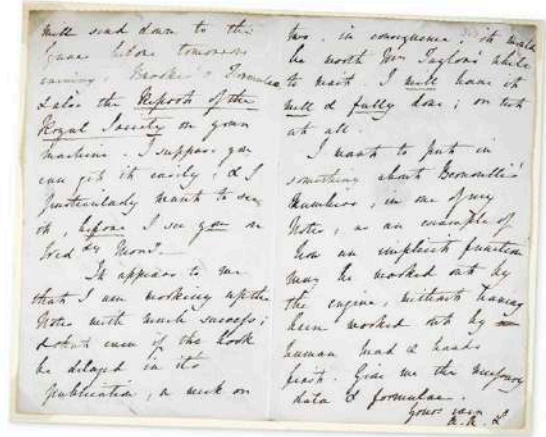 will send down to the
before tomorrow
evening, Brooke's Formulae,
& also the Report of the
Royal Society on your
machine. I suppose you
can get it easily, & I
particularly want to see
it, before I see you on
Wedy Mornd.
It appears to me
that I am working up the
Notes with much success;
& that even if the book
be delayed in its
publication, a week or
two, in consequence, it would
be worth Mr Taylor's while
to wait. I will have it
well & fully done; or not
at all.
I want to put in
something about Bernoulli's
Numbers, in one of my
Notes, as an example of
how an implicit function
may be worked out by
the engine, without having
been worked out by
human head & hands
first. Give me the necessary
data & formulae.
Yours ever
A. A. L